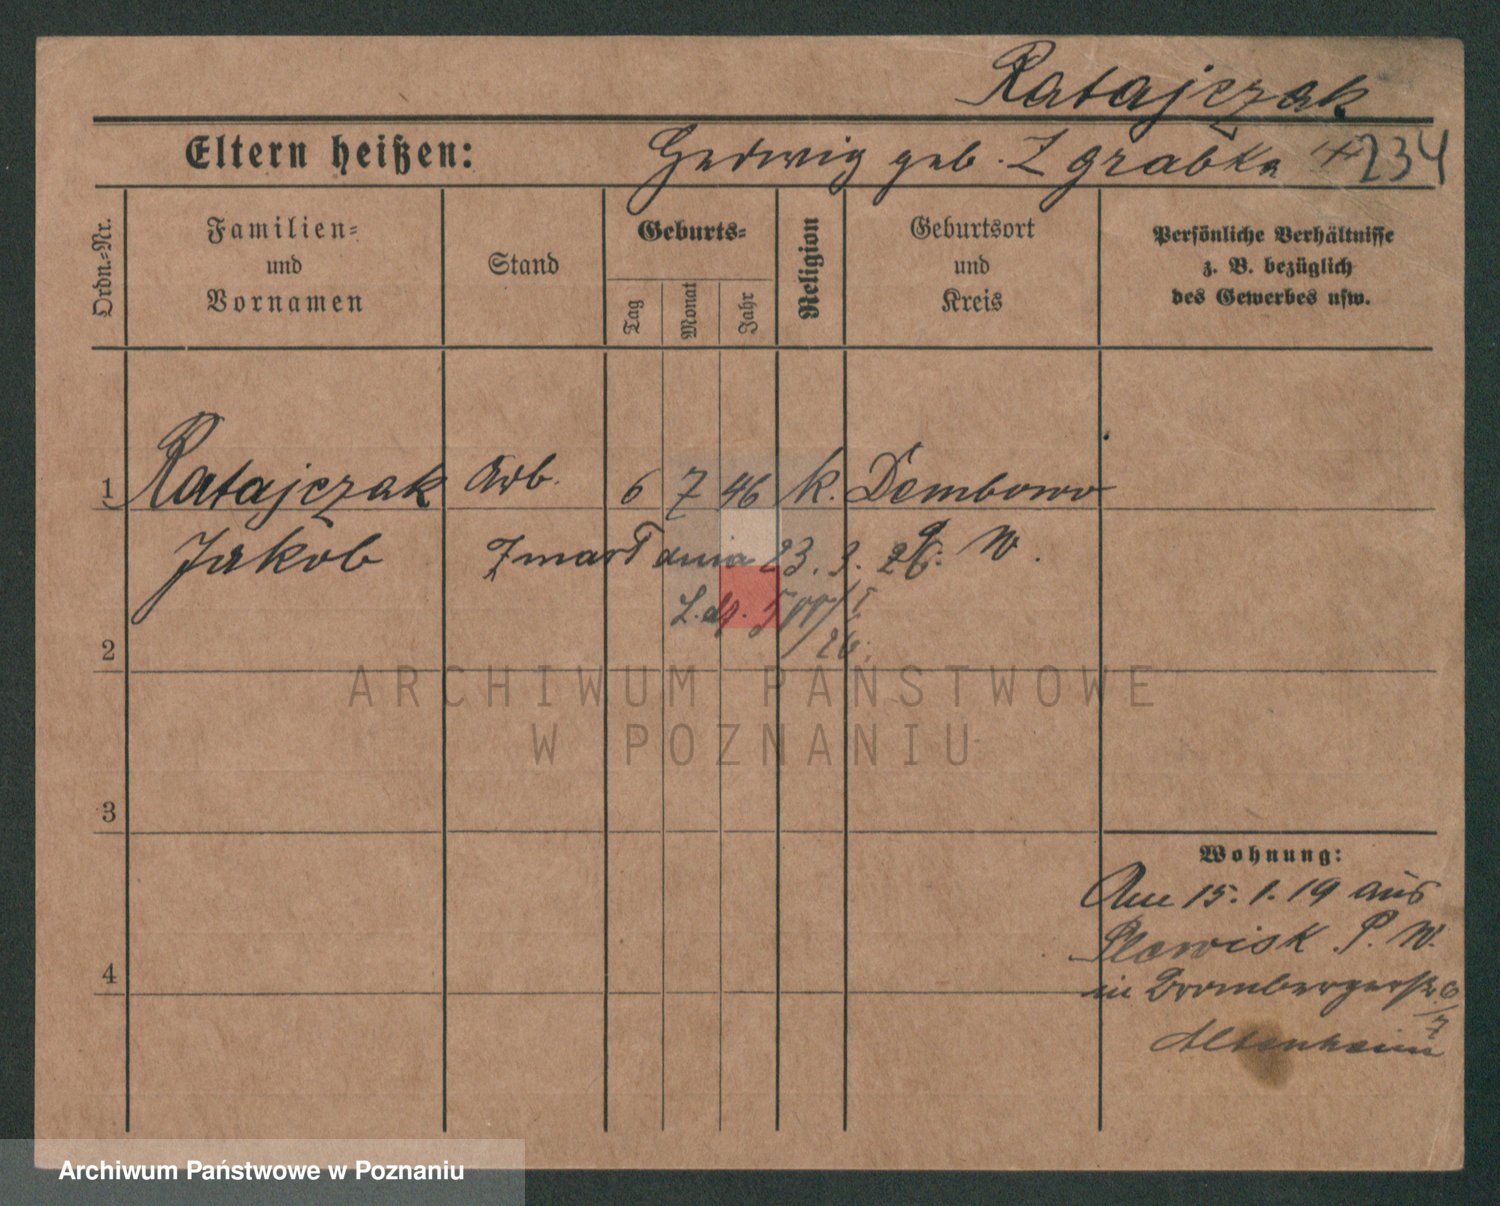 Ratajczak
Eltern heißen: Hedwig geb. Zgrabka 234
Ordn.-Nr.
Familien=
und
Vornamen
Stand
Geburts=
Tag
Monat
Jahr
Religion
Geburtsort
und
Kreis
Persönliche Verhältnisse
z. B. bezüglich
des Gewerbes usw.
1 Ratajczak Arb. 6 7 46 k. Dembowo
Jakob Zmarł dnia 23. 3. 26. W.
L. dz. 500/I
26.
2
ARCHIWUM PAŃSTWOWE
W POZNANIU
3
Wohnung:
Am 15. 1. 19 aus
Plewisk P. W.
4
in Brombergerstr. 6/7
Altenheim
Archiwum Państwowe w Poznaniu